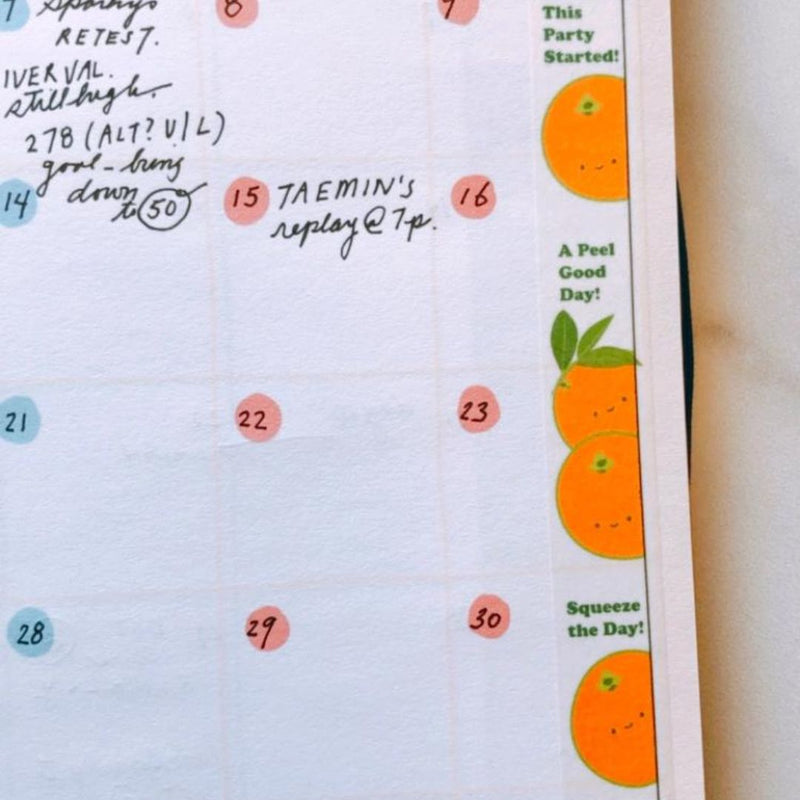 7
RETEST.
8
9
IVER VAL.
still high.
278 (ALT? U/L)
goal - bring
down
to 50
This
Party
Started!
14
15 TAEMIN'S
replay @ 7p.
16
A Peel
Good
Day!
21
22
23
28
29
30
Squeeze
the Day!